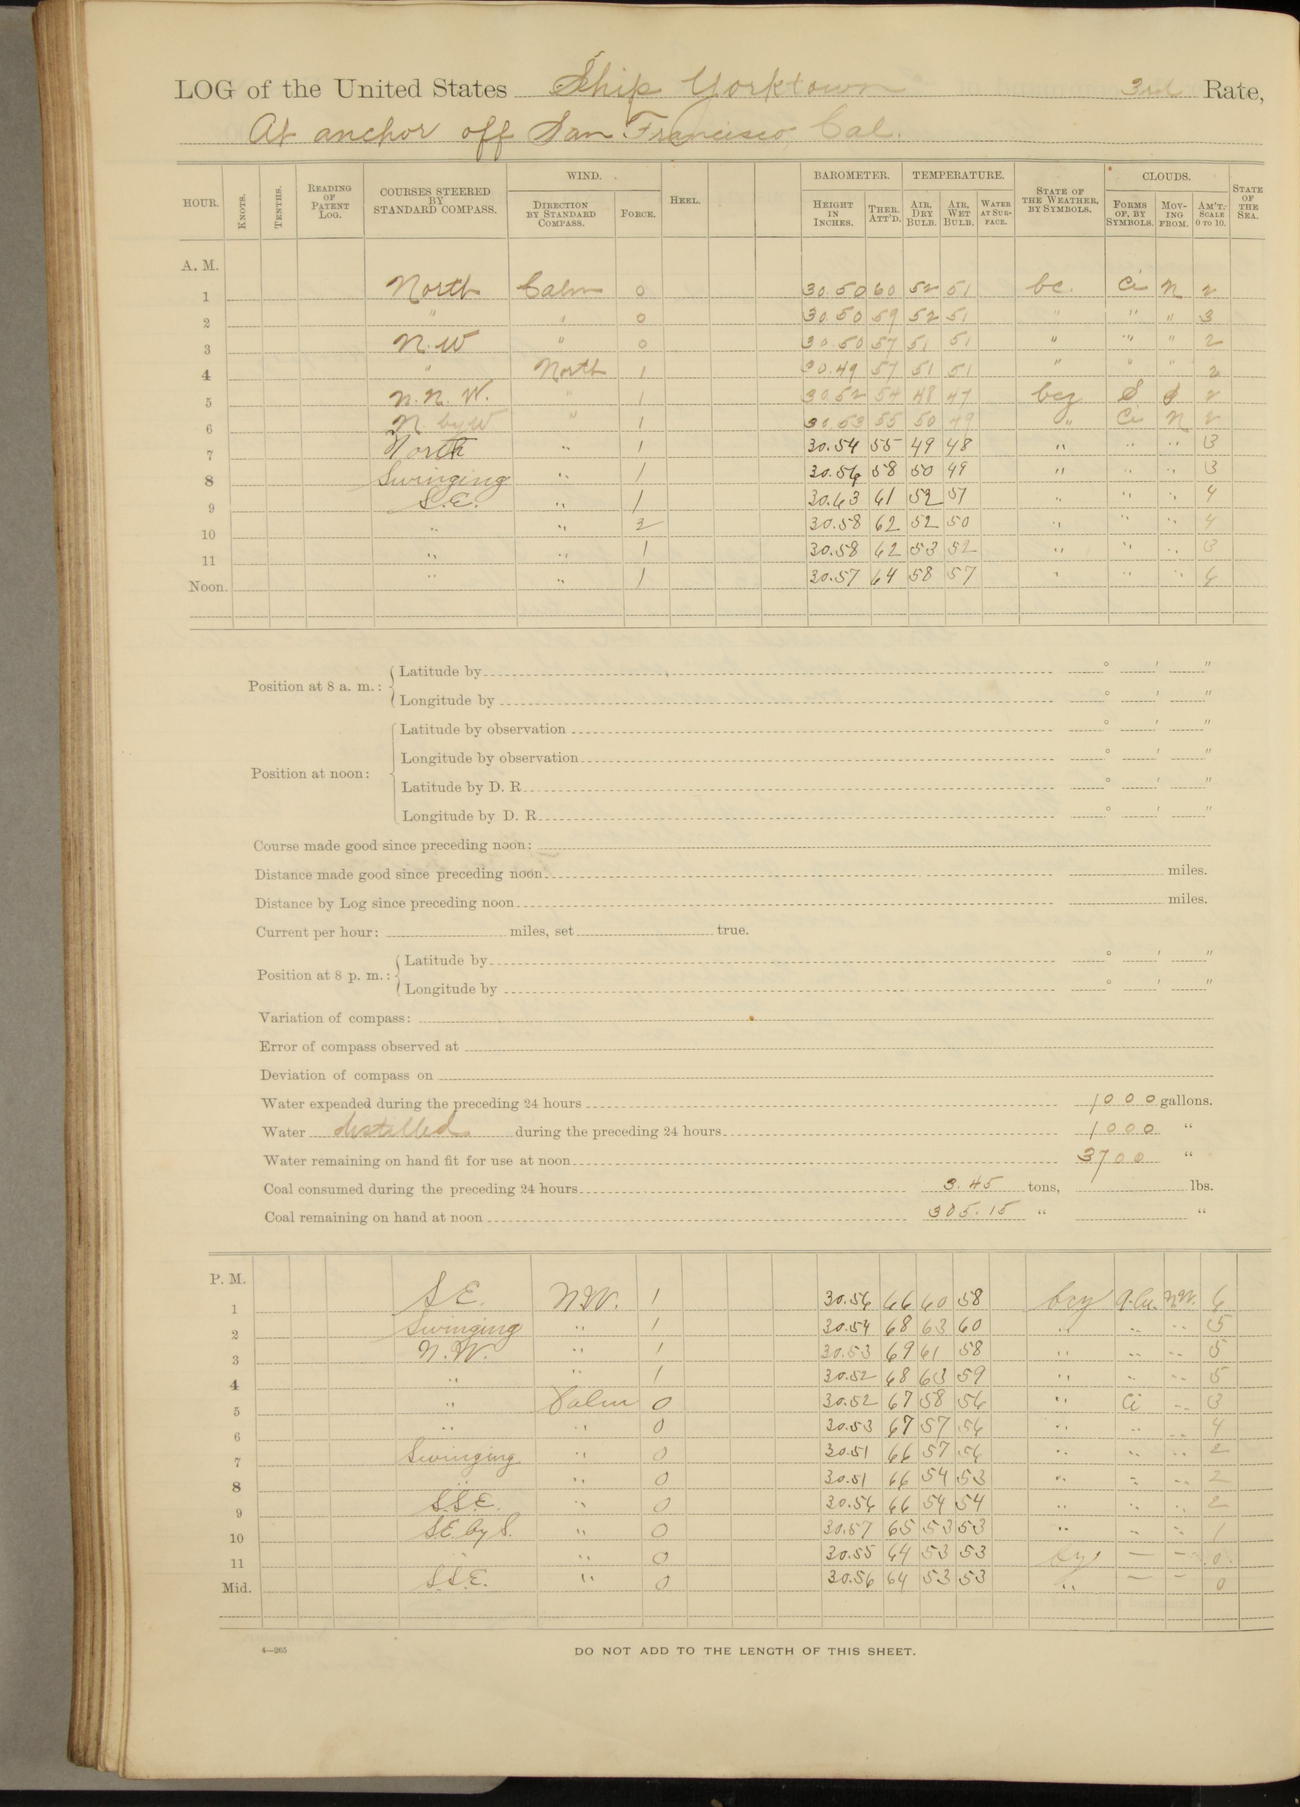 LOG of the United States Ship Yorktown 3rd Rate,
At anchor off San Francisco, Cal.
HOUR. KNOTS. TENTHS. READING OF PATENT LOG. COURSES STEERED BY STANDARD COMPASS. WIND. DIRECTION BY STANDARD COMPASS. FORCE. HEEL. BAROMETER. HEIGHT IN INCHES. THER. ATT'D. TEMPERATURE. AIR, DRY BULB. AIR, WET BULB. WATER AT SURFACE. STATE OF THE WEATHER, BY SYMBOLS. CLOUDS. FORMS OF, BY SYMBOLS. MOVING FROM. AM'T. SCALE 0 TO 10. STATE OF THE SEA.
A. M.
1 North Calm 0 30.50 60 52 51 bc. Ci N 2
2 " " 0 30.50 59 52 51 " " " 3
3 N.W " 0 30.50 57 51 51 " " " 2
4 " North 1 30.49 57 51 51 " " " 2
5 N.N.W. " 1 30.52 54 48 47 bcz S 2
6 N. by W " 1 30.53 55 50 49 " Ci N 2
7 North " 1 30.54 55 49 48 " " " 3
8 Swinging " 1 30.56 58 50 49 " " " 3
9 S.E. " 1 30.63 61 52 51 " " " 4
10 " " 2 30.58 62 52 50 " " " 4
11 " " 1 30.58 62 53 52 " " " 3
Noon. " " 1 30.57 64 58 57 " " " 6
Position at 8 a. m.: Latitude by ° ' "
Longitude by ° ' "
Position at noon: Latitude by observation ° ' "
Longitude by observation ° ' "
Latitude by D. R. ° ' "
Longitude by D. R. ° ' "
Course made good since preceding noon:
Distance made good since preceding noon miles.
Distance by Log since preceding noon miles.
Current per hour: miles, set true.
Position at 8 p. m.: Latitude by ° ' "
Longitude by ° ' "
Variation of compass:
Error of compass observed at
Deviation of compass on
Water expended during the preceding 24 hours 1000 gallons.
Water distilled during the preceding 24 hours 1000 "
Water remaining on hand fit for use at noon 3700 "
Coal consumed during the preceding 24 hours 3.45 tons, lbs.
Coal remaining on hand at noon 305.15 " "
P. M.
1 S E. N.W. 1 30.56 66 60 58 bcz A.Cu. N.W. 6
2 Swinging " 1 30.54 68 63 60 " " " 5
3 N.W. " 1 30.53 69 61 58 " " " 5
4 " " 1 30.52 68 63 59 " " " 5
5 " Calm 0 30.52 67 58 56 " Ci " 3
6 " " 0 30.53 67 57 56 " " " 4
7 Swinging " 0 30.51 66 57 56 " " " 2
8 " " 0 30.51 66 54 53 " " " 2
9 S.S.E. " 0 30.56 66 54 54 " " " 2
10 S.E. by S. " 0 30.57 65 53 53 " " " 1
11 " " 0 30.55 64 53 53 — — 0
Mid. S.S.E. " 0 30.56 64 53 53 " — — 0
4—265 DO NOT ADD TO THE LENGTH OF THIS SHEET.